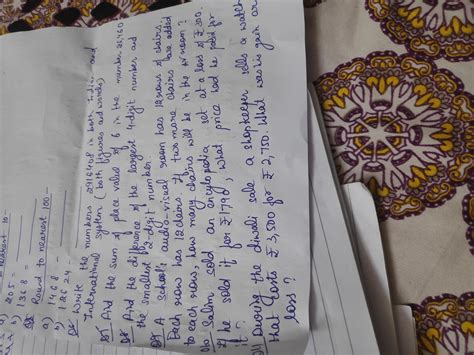 nearest 10-
a) 205 -
b) 1368 -
Q5 Round to nearest 100 -
a) 1468 -
b) 12624 -
Q6 Write the numbers 2916408 in both Indian and
International system (both figures and words)
Q7 Find the sum of place value of 6 in the number
Q8 Find the difference of the largest 4-digit number and
the smallest 2-digit number.
Q9 A school audio-visual room has 12 rows of chairs.
Each row has 12 chairs. If two more chairs are added
to each row, how many chairs will be in the room?
Salim sold an encyclopedia set at a loss of ₹ 200.
If he sold it for ₹ 1796, what price had he paid for
it?
During the diwali sale a shopkeeper sells a watch
that costs ₹ 3,500 for ₹ 2,750. What was his gain or
loss?